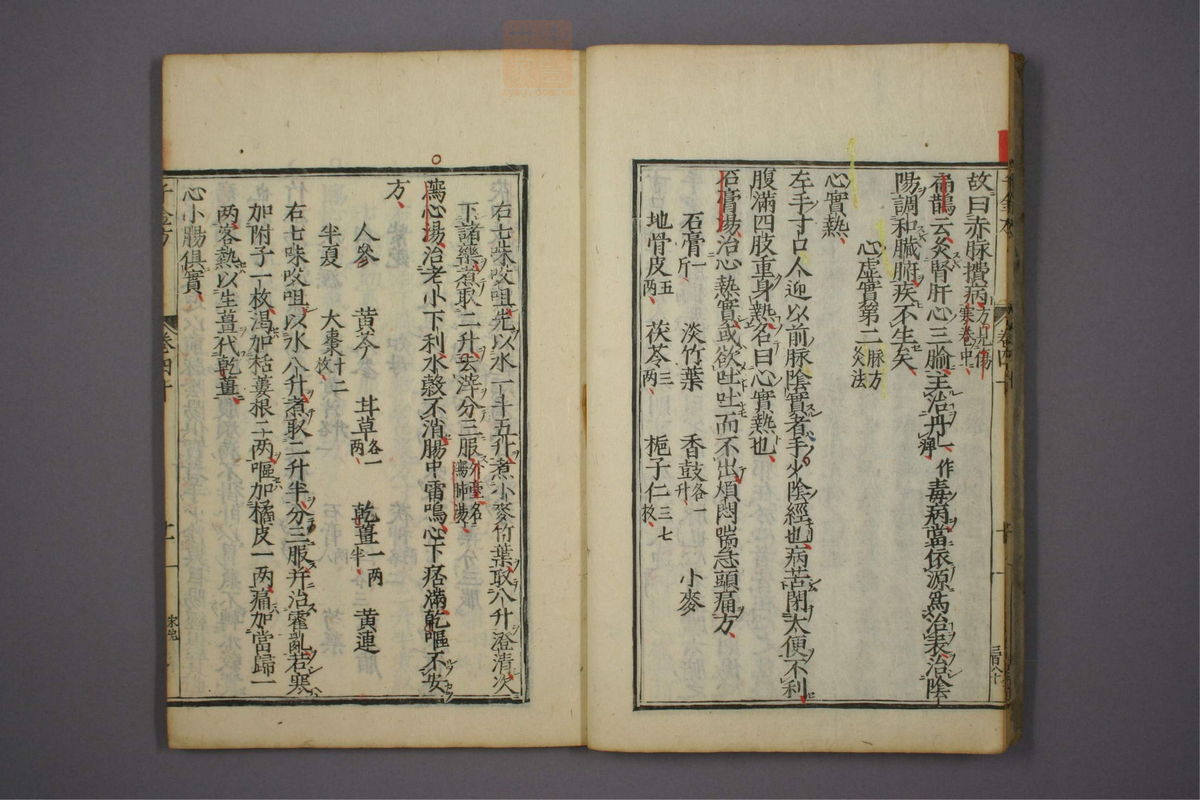 故曰赤脉攢病方見傷寒卷中
扁鵲云灸腎肝心三腧主治丹一作痹毒病當依源爲治表治陰
陽調和臟腑疾不生矣
心虛實第二脉方灸法
心實熱
左手寸口人迎以前脉陰實者手少陰經也病苦閉大便不利
腹滿四肢重身熱名曰心實熱也
石膏湯治心熱實或欲吐吐而不出煩悶喘急頭痛方
石膏一斤 淡竹葉 香豉各一升 小麥
地骨皮五兩 茯苓三兩 梔子仁三七枚
右七味㕮咀先以水一斗五升煮小麥竹葉取八升澄清次
下諸藥煮取二升去滓分三服外臺名瀉肺湯
瀉心湯治老小下利水穀不消腸中雷鳴心下痞滿乾嘔不安
方
人參 黃芩 甘草各一兩 乾薑一兩半 黃連
半夏 大棗十二枚
右七味㕮咀以水八升煮取二升半分三服并治霍亂若寒
加附子一枚渴加栝蔞根二兩嘔加橘皮一兩痛加當歸一
兩客熱以生薑代乾薑
心小腸俱實
卷四十